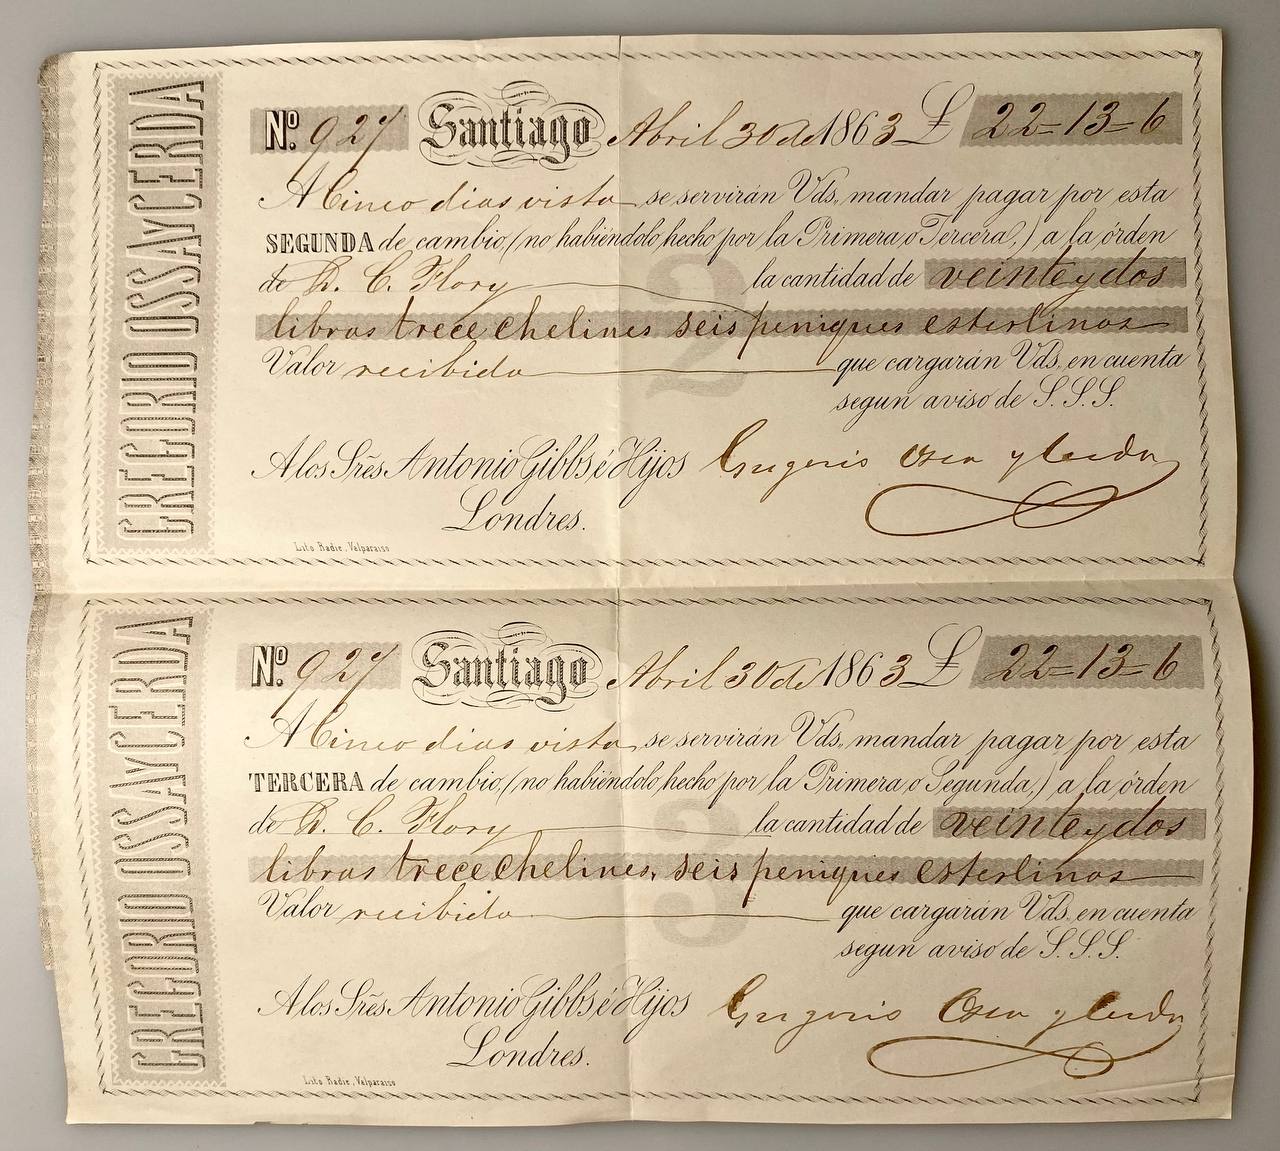 GREGORIO OSSA Y CERDA
Nº. 927 Santiago Abril 30 de 1863 £ 22=13=6
A Cinco dias vista se servirán Vds. mandar pagar por esta
SEGUNDA de cambio, (no habiéndolo hecho por la Primera o Tercera,) a la órden
de D. C. Flory la cantidad de veinte y dos
libras trece chelines seis peniques esterlinas
Valor recibido que cargarán Vds. en cuenta
segun aviso de S.S.S.
A los Sres Antonio Gibbs é Hijos Gregorio Ossa y Cerda
Londres.
Lito Badie, Valparaiso
2
GREGORIO OSSA Y CERDA
Nº. 927 Santiago Abril 30 de 1863 £ 22=13=6
A Cinco dias vista se servirán Vds. mandar pagar por esta
TERCERA de cambio, (no habiéndolo hecho por la Primera o Segunda,) a la órden
de D. C. Flory la cantidad de veinte y dos
libras trece chelines seis peniques esterlinas
Valor recibido que cargarán Vds. en cuenta
segun aviso de S.S.S.
A los Sres Antonio Gibbs é Hijos Gregorio Ossa y Cerda
Londres.
Lito Badie, Valparaiso
3